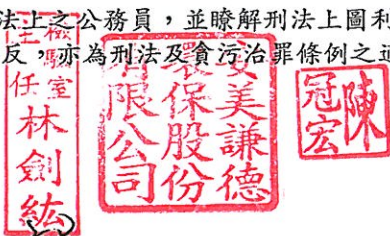 法上之公務員，並瞭解刑法上圖利
反，亦為刑法及貪污治罪條例之適
檢驗室
主任
林劍紘
美謙德
環保股份
有限公司
陳
冠宏